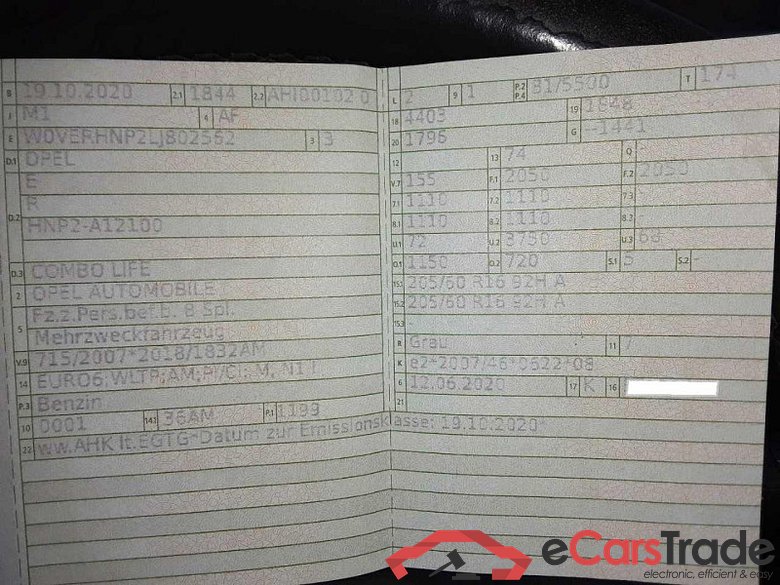 B 19.10.2020 2.1 1844 2.2 AHI00102 0
J M1 4 AF
E W0VERHNP2LJ802562 3 3
D.1 OPEL
E
R
D.2 HNP2-A12100
D.3 COMBO LIFE
2 OPEL AUTOMOBILE
5 Fz.z.Pers.bef.b. 8 Spl.
Mehrzweckfahrzeug
V.9 715/2007*2018/1832AM
14 EURO6;WLTP;AM;PI/CI; M, N1 I
P.3 Benzin
10 0001 14.1 36AM P.1 1199
22 ww.AHK lt.EGTG*Datum zur Emissionsklasse: 19.10.2020*
L 2 9 1 P.2 P.4 81/5500 T 174
18 4403 19 1848
20 1796 G --1441
12 - 13 74 Q -
V.7 155 F.1 2050 F.2 2050
7.1 1110 7.2 1110 7.3 -
8.1 1110 8.2 1110 8.2 -
U.1 72 U.2 3750 U.3 68
O.1 1150 O.2 720 S.1 5 S.2 -
15.1 205/60 R16 92H A
15.2 205/60 R16 92H A
15.3 -
R Grau 11 7
K e2*2007/46*0622*08
6 12.06.2020 17 K 16
21
eCarsTrade
electronic, efficient & easy